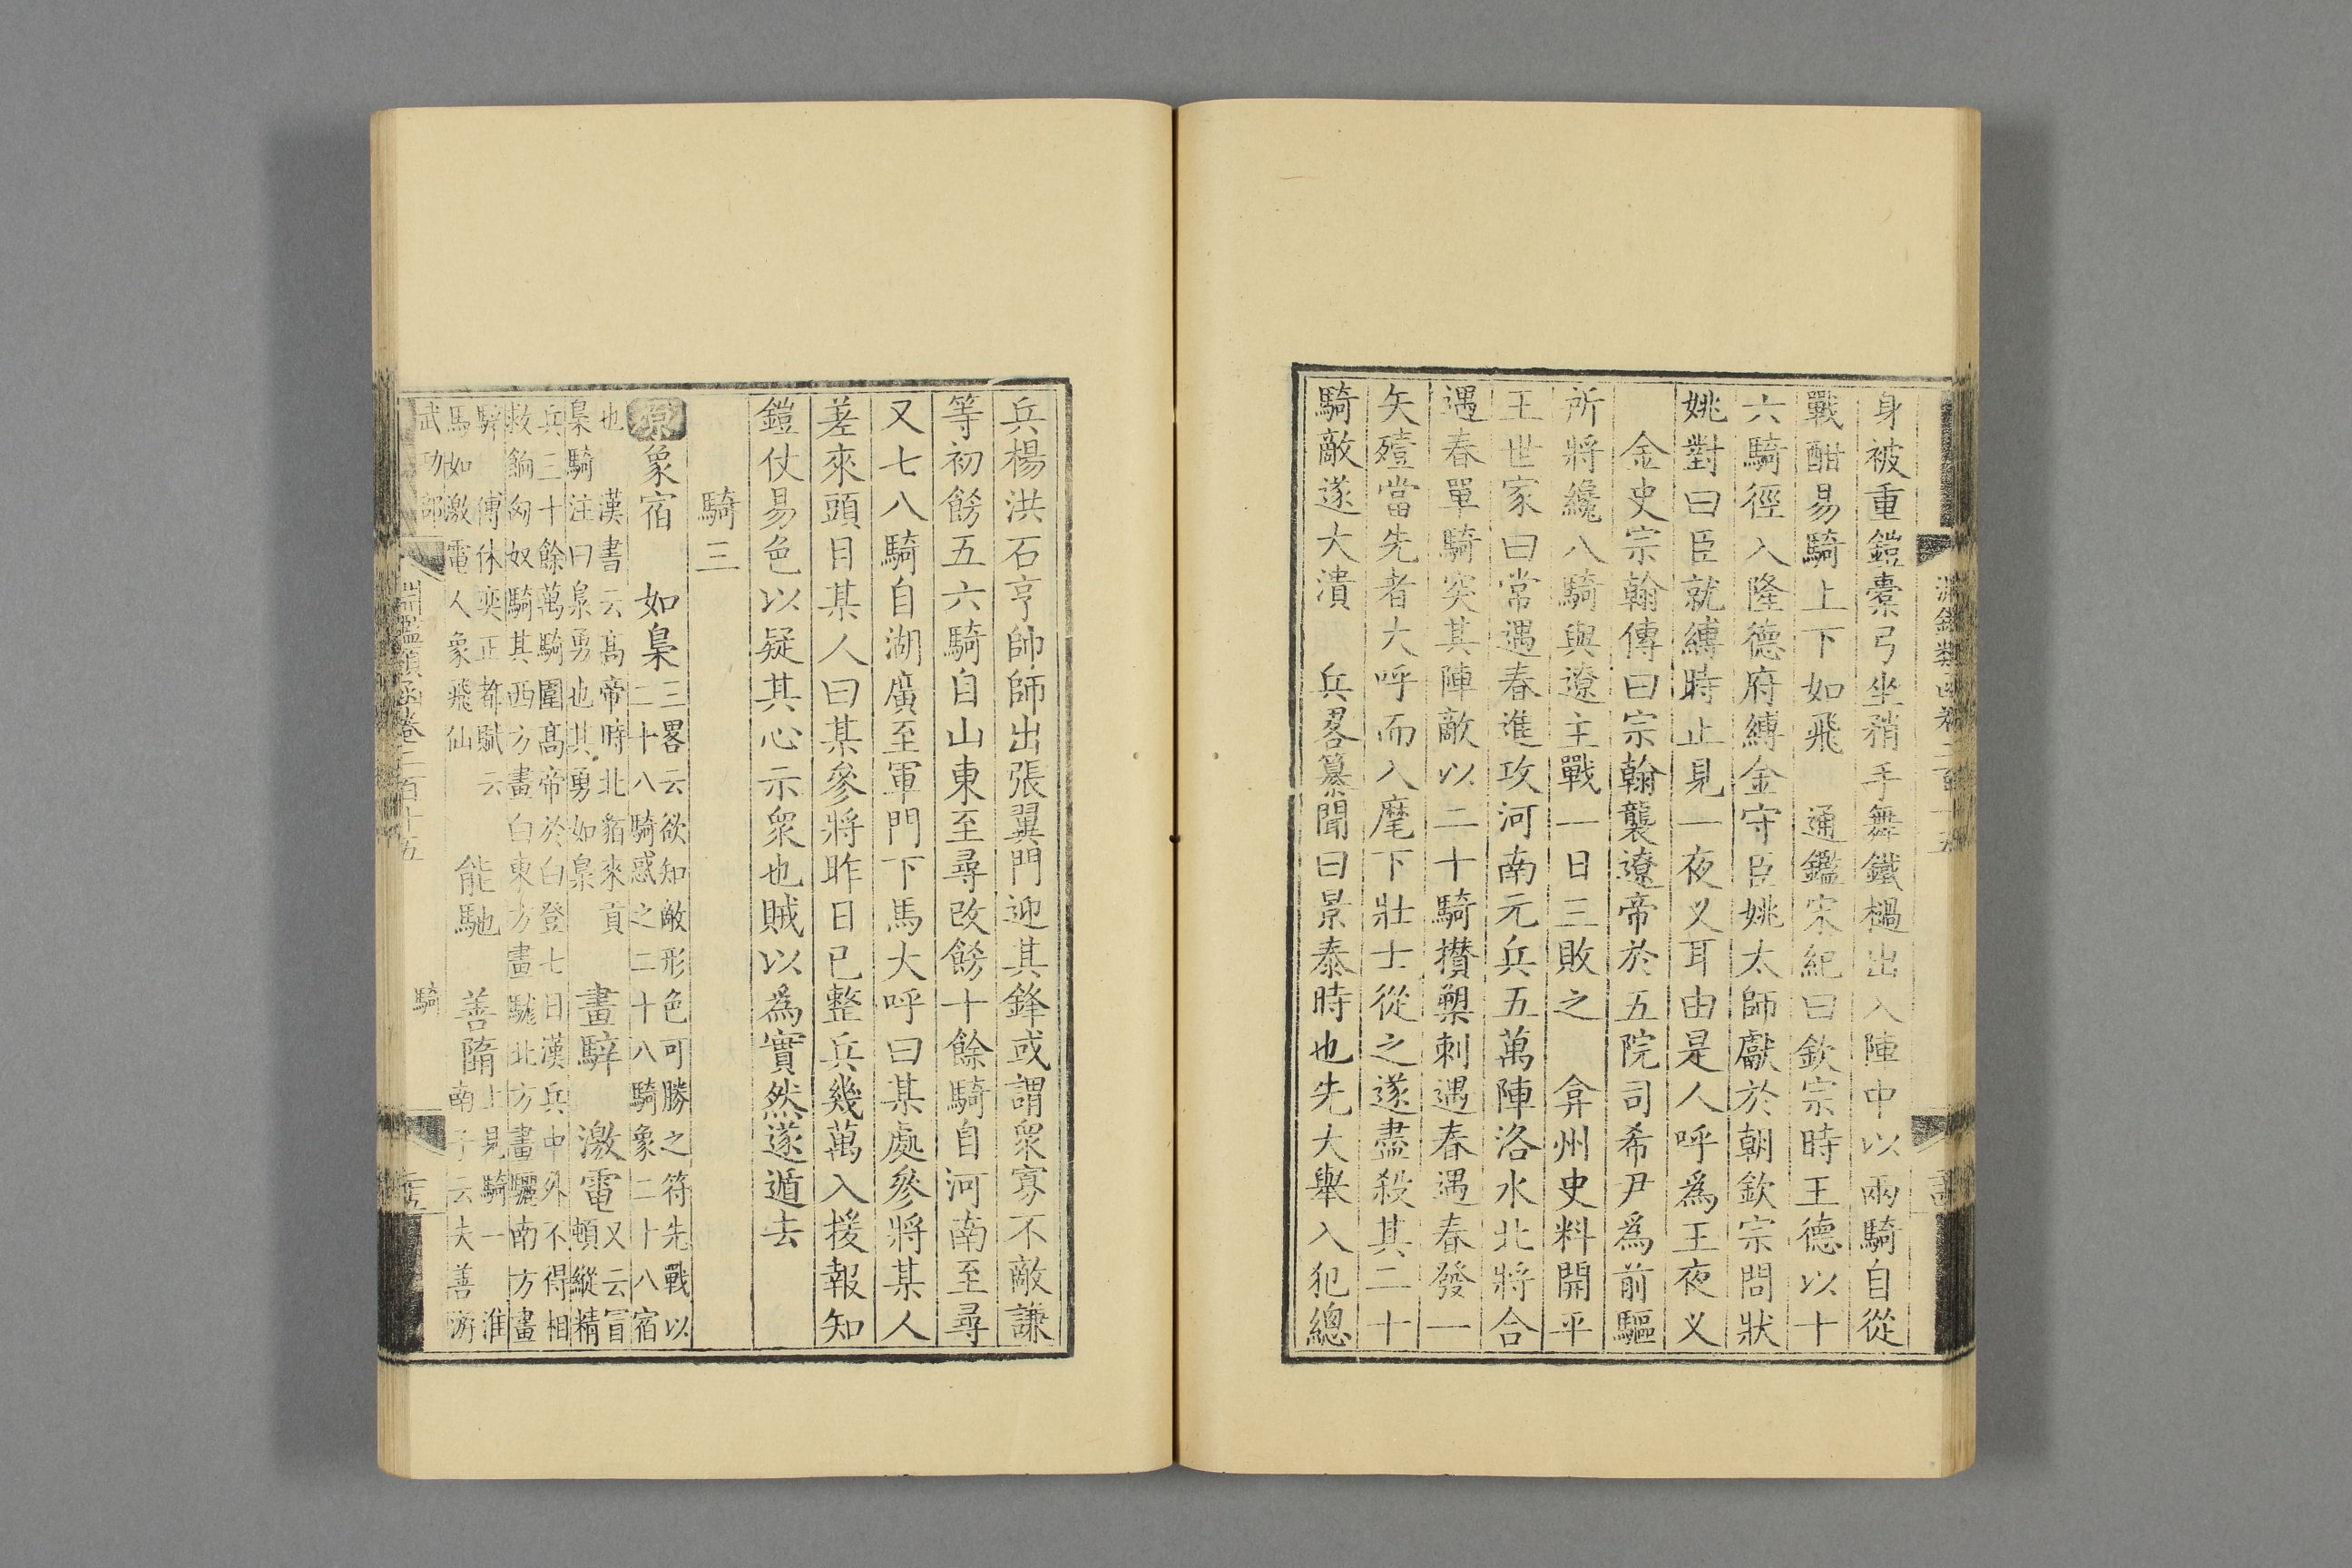 身被重鎧櫜弓坐矟手舞鐵檛出入陣中以兩騎自從
戰酣易騎上下如飛　通鑑宋紀曰欽宗時王德以十
六騎徑入隆德府縛金守臣姚太師獻於朝欽宗問狀
姚對曰臣就縛時止見一夜义耳由是人呼爲王夜义
金史宗翰傳曰宗翰襲遼帝於五院司希尹爲前驅
所將纔八騎與遼主戰一日三敗之　弇州史料開平
王世家曰常遇春進攻河南元兵五萬陣洛水北將合
遇春單騎突其陣敵以二十騎攅槊刺遇春遇春發一
矢殪當先者大呼而入麾下壯士從之遂盡殺其二十
騎敵遂大潰　兵畧纂聞曰景泰時也先大舉入犯總
兵楊洪石亨帥師出張翼門迎其鋒或謂衆寡不敵謙
等初餝五六騎自山東至尋改餝十餘騎自河南至尋
又七八騎自湖廣至軍門下馬大呼曰某處參將某人
差來頭目某人曰某參將昨日已整兵幾萬入援報知
鎧仗易色以疑其心示衆也賊以為實然遂遁去
騎三
原象宿　如梟
三畧云欲知敵形色可勝之符先戰以
二十八騎惑之二十八騎象二十八宿
也　漢書云髙帝時北貊來貢
梟騎注曰梟勇也其勇如梟
畫騂　激電
又云冒
頓縱精
兵三十餘萬騎圍髙帝於白登七日漢兵中外不得相
救餉匈奴騎其西方畫白東方畫駹北方畫驪南方畫
騂　傅休奕正都賦云
馬如激電人象飛仙
能馳　善隋
上見騎一　淮
南子云夫善游
武功部
淵鑑類函卷二百十五
騎